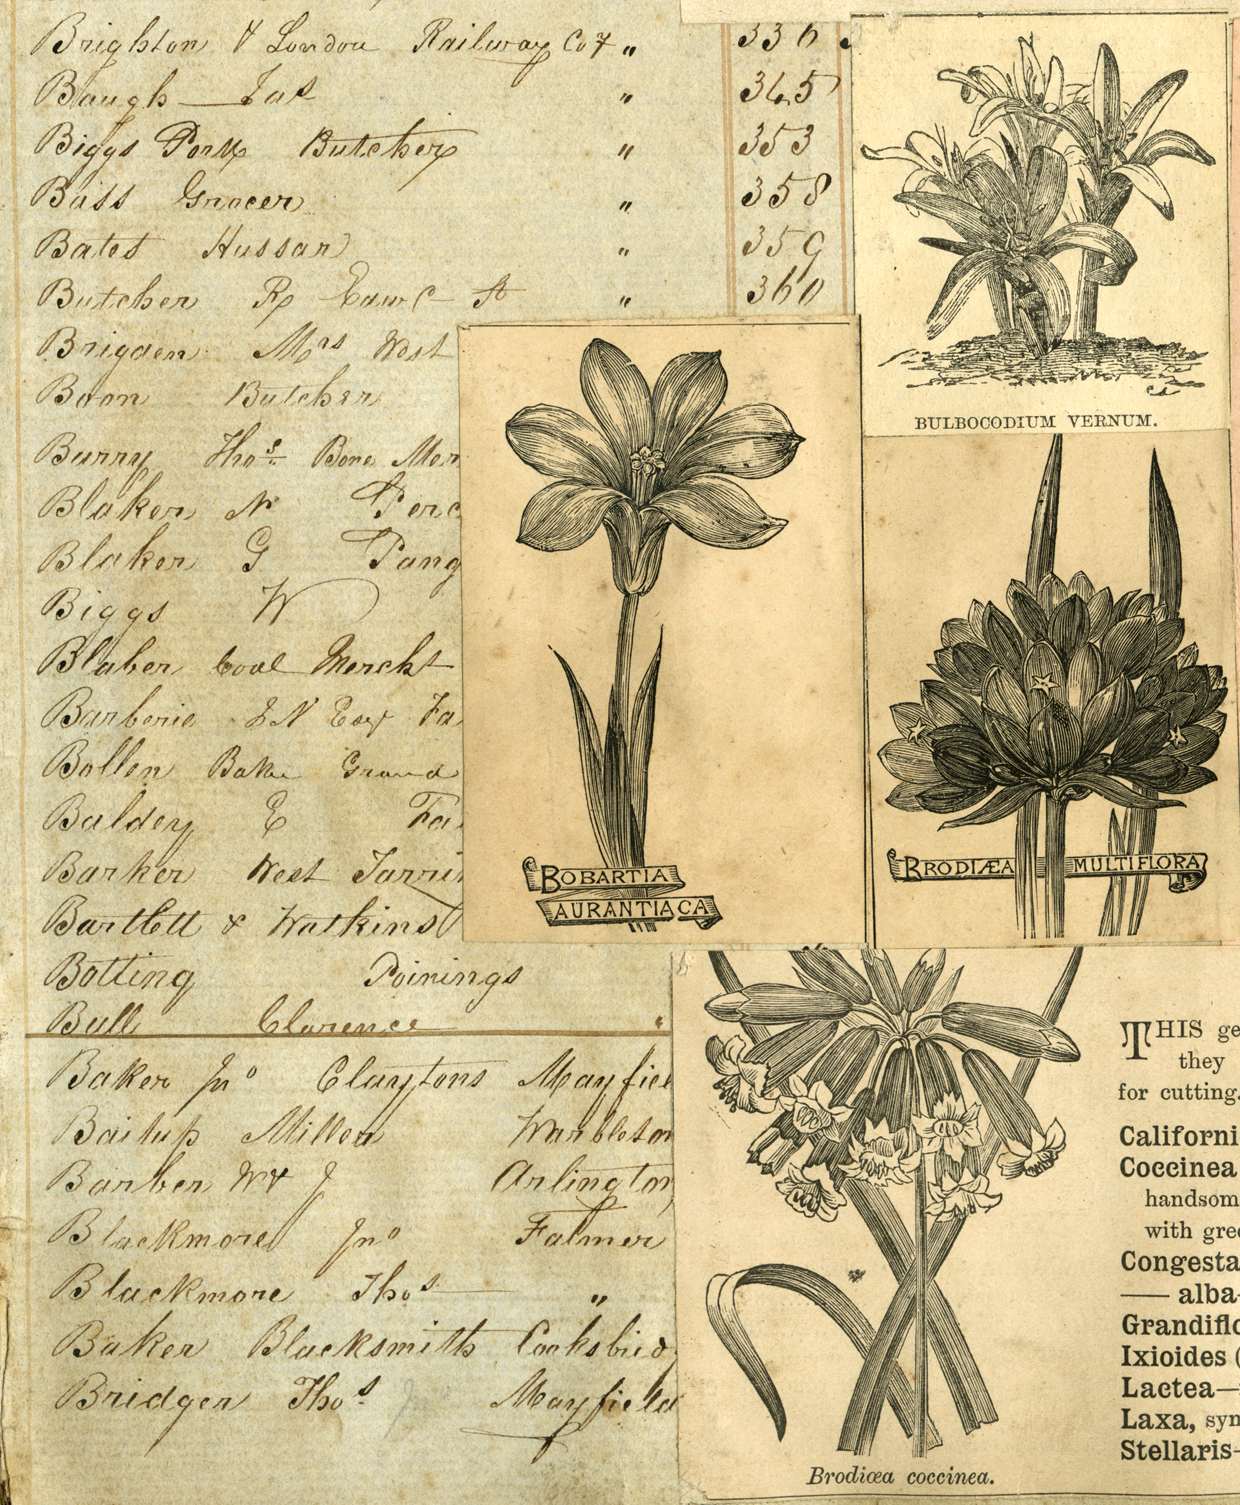 Brighton & London Railway Coy " 336
Baugh Jas " 345
Biggs Pork Butcher " 353
Bass Grocer " 358
Bates Hussar " 359
Butcher " 360
Brigden Mrs West
Boon Butcher
Bunny Thos Bone Mer
Blaker N
Blaker G Pang
Biggs W
Blaber Coal Mercht
Barberie J N Esqr Fa
Bollen Grand
Baldey E
Barker West Tarri
Bartlett & Watkins
Botting Poinings
Bull Clarence "
Baker Jno Claytons Mayfiel
Miller Warbleton
Barber W & J Arlington
Blackmore Jno Falmer
Blackmore Thos "
Baker Blacksmith Cooksbrid
Bridger Thos Mayfield
BULBOCODIUM VERNUM.
BOBARTIA
AURANTIACA
BRODIÆA MULTIFLORA
Brodiœa coccinea.
THIS ge
they
for cutting.
Californi
Coccinea
handsom
with gree
Congesta
— alba-
Grandiflo
Ixioides (
Lactea—
Laxa, syn
Stellaris-